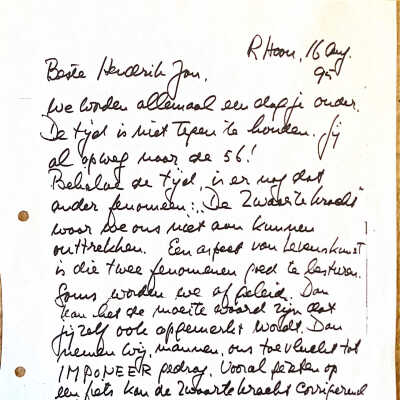 RHoon, 16 Aug.
95
Beste Hendrik Jan,
We worden allemaal een dagje ouder.
De tijd is niet tegen te houden. Jij
al opweg naar de 56!
Behalve de tijd, is er nog dat
ander fenomeen: "De Zwaartekracht"
waar we ons niet aan kunnen
onttrekken. Een aspect van Levenskunst
is die twee fenomenen goed te besturen.
Soms worden we afgeleid. Dan
kan het de moeite waard zijn dat
jijzelf ook opgemerkt wordt. Dan
nemen wij, mannen, ons toevlucht tot
IMPONEER gedrag. Vooral
een fiets kan de Zwaartekracht